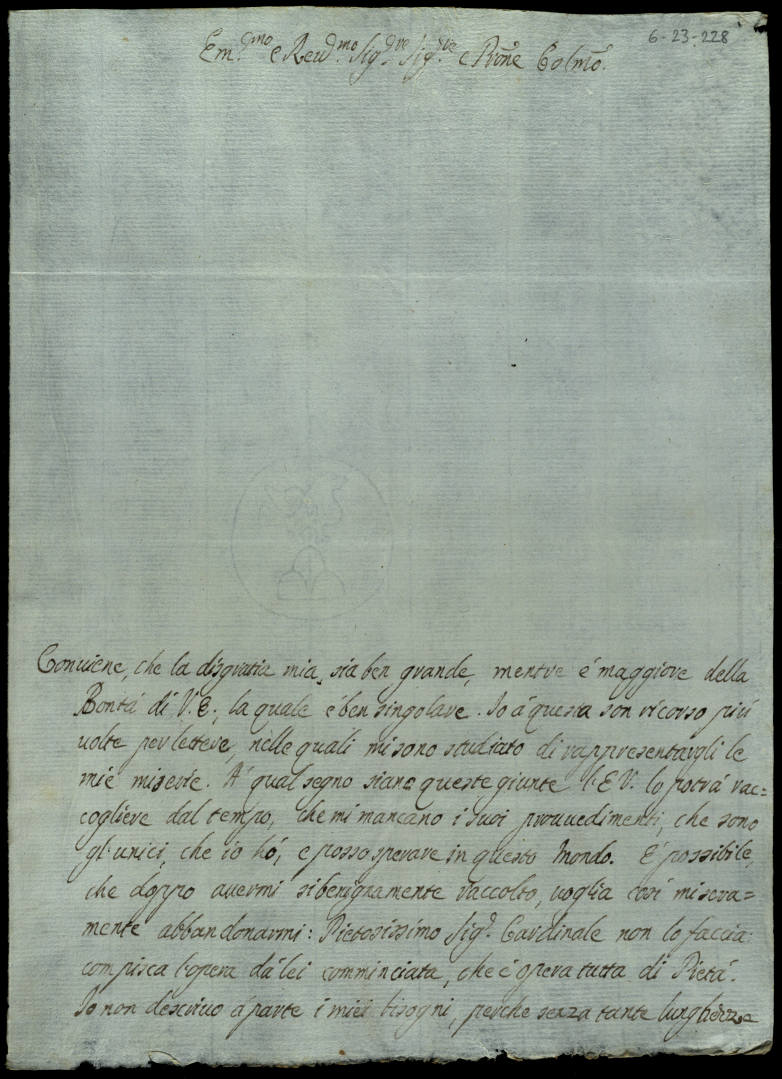 6-23-228
Em.mo e Reud.mo Sig.re Sig.re e Prōne Colmo.
Conuiene, che la disgratia mia, sia ben grande, mentre é maggiore della
Bontá di V. E., la quale é ben singolare. Io á questa son ricorso piú
uolte per lettere, nelle quali mi sono studiato di rappresentargli le
mie miserie. Á qual segno siano queste giunte l'E V. lo potrá rac=
cogliere dal tempo, che mi mancano i suoi prouuedimenti, che sono
gl'unici, che io hó, e posso sperare in questo Mondo. É possibile,
che doppo auermi si benignamente raccolto, uoglia cosí misera=
mente abbandonarmi: Pietosissimo Sig.r Cardinale non lo faccia:
compisca l'opera dá lei comminciata, che é opera tutta di Pietá.
Io non descriuo á parte i miei bisogni, perche senza tante lunghezze